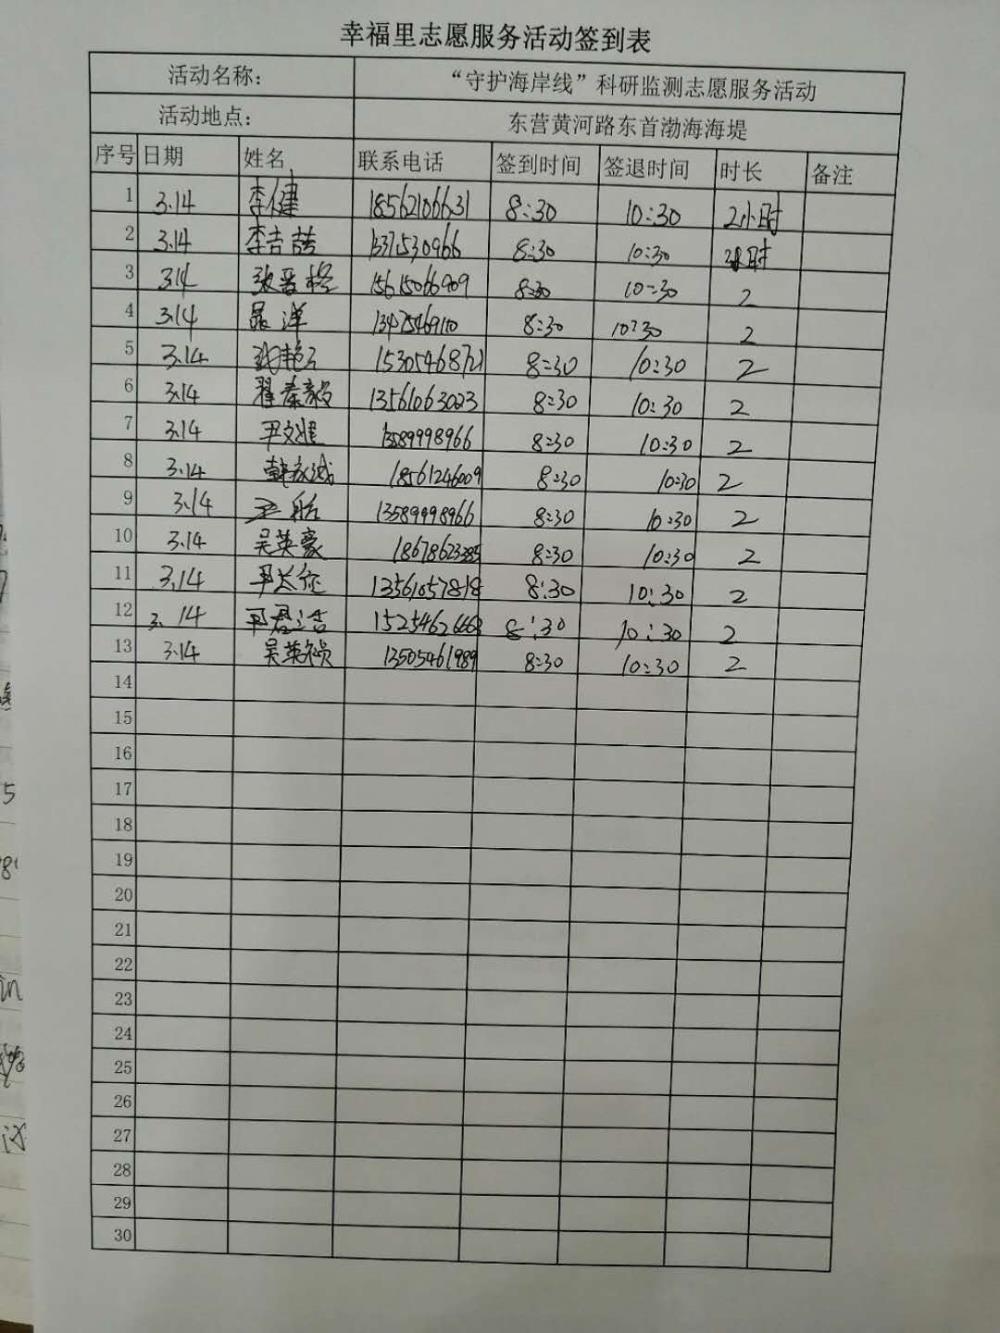 幸福里志愿服务活动签到表
活动名称： “守护海岸线”科研监测志愿服务活动
活动地点： 东营黄河路东首渤海海堤
序号 日期 姓名 联系电话 签到时间 签退时间 时长 备注
1 3.14 李健 18562106631 8:30 10:30 2小时
2 3.14 李吉喆 8:30 10:30 小时
3 3.14 张晋 15615066909 8:30 10:30 2
4 3.14 洋 8:30 10:30 2
5 3.14 艳 15305468721 8:30 10:30 2
6 3.14 翟秦毅 13561063023 8:30 10:30 2
7 3.14 尹文 13589998966 8:30 10:30 2
8 3.14 韩 18561246009 8:30 10:30 2
9 3.14 航 13589998966 8:30 10:30 2
10 3.14 吴英豪 8:30 10:30 2
11 3.14 13561057818 8:30 10:30 2
12 3.14 君 8:30 10:30 2
13 3.14 吴英 13505461989 8:30 10:30 2
14
15
16
17
18
19
20
21
22
23
24
25
26
27
28
29
30